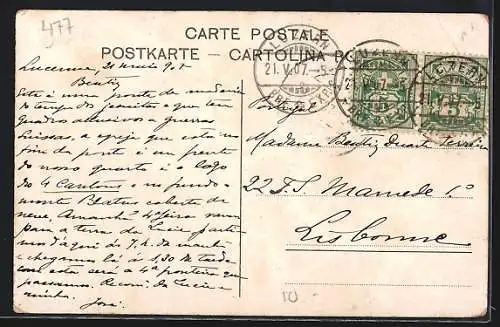 477
CARTE POSTALE
POSTKARTE — CARTOLINA PO
LUZERN
21.V.07.-5
LUZERN
LUZERN
Lucerne, 21 maio 907
Beatriz
Esta é uma ponte de madeira
do tempo dos que tem
quadros allusivos a guerras
Suissas, a egreja que está no
fim da ponte é em frente
do nosso quarto e o lago
dos 4 Cantons e ao fundo o
monte Pilatus coberto de
neve. Amanhã 4ª feira vamos
para a terra da Lucie, parti-
mos d'aqui ás 7 h. da manhã
e chegamos lá ás 1,30 da tarde
com esta será a 4ª fronteira que
passamos. Recom. da Lucie e
minhas.
José
Portugal
Madame Beatriz Duarte Ferreira
22 T. S. Mamede 1º
Lisbonne
10